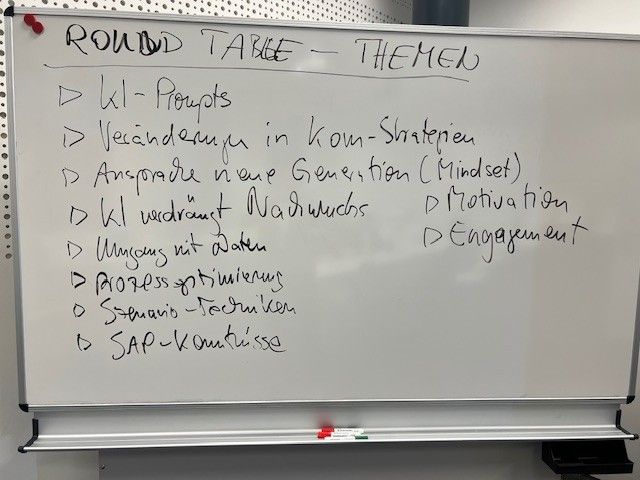 ROUND TABLE – THEMEN
▷ KI-Prompts
▷ Veränderungen in Kom-Strategien
▷ Ansprache neue Generation (Mindset)
▷ KI verdrängt Nachwuchs
▷ Motivation
▷ Umgang mit Daten
▷ Engagement
▷ Prozessoptimierung
▷ Szenario-Techniken
▷ SAP-Kenntnisse